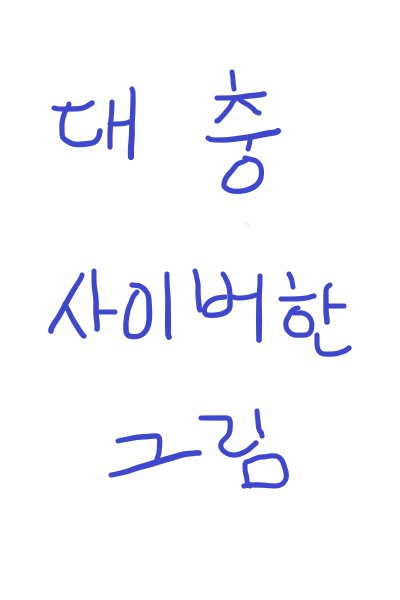 대충
사이버한
그림